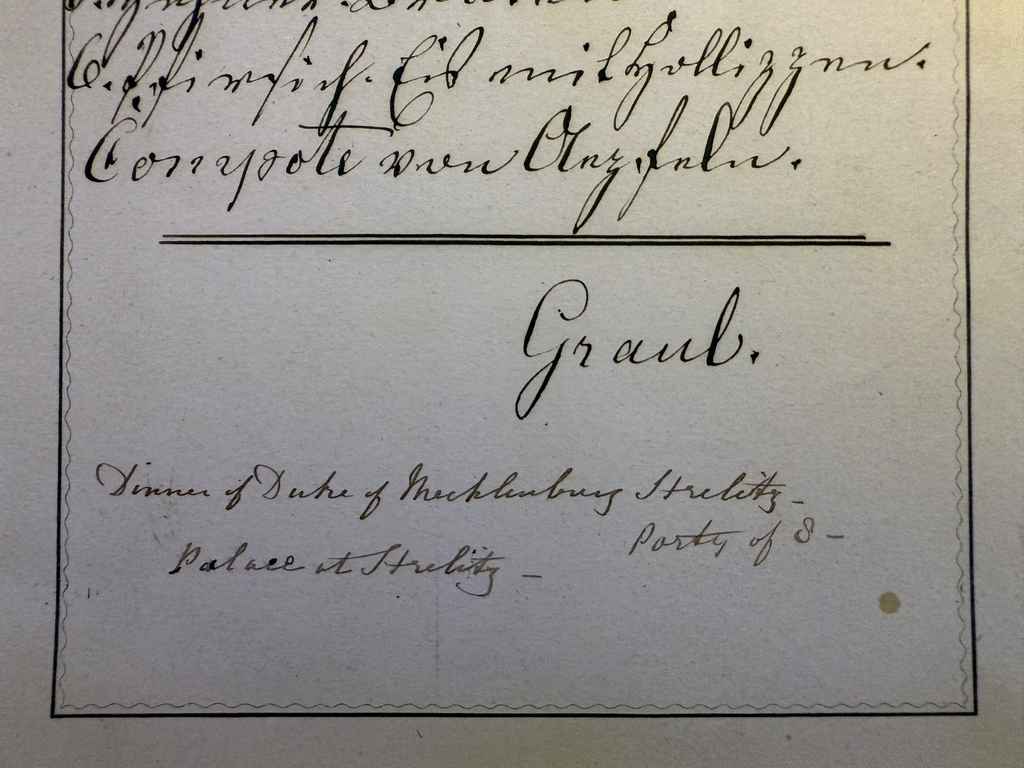 6. Pfirsich-Eis mit Hollippen.
Compote von Aepfeln.
Graul.
Dinner of Duke of Mecklenburg Strelitz –
Party of 8 –
Palace at Strelitz –